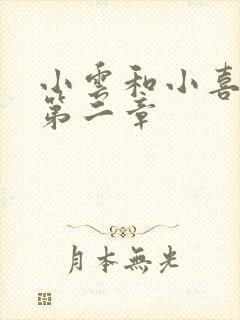 小雲和小喜
第二章
月本無光